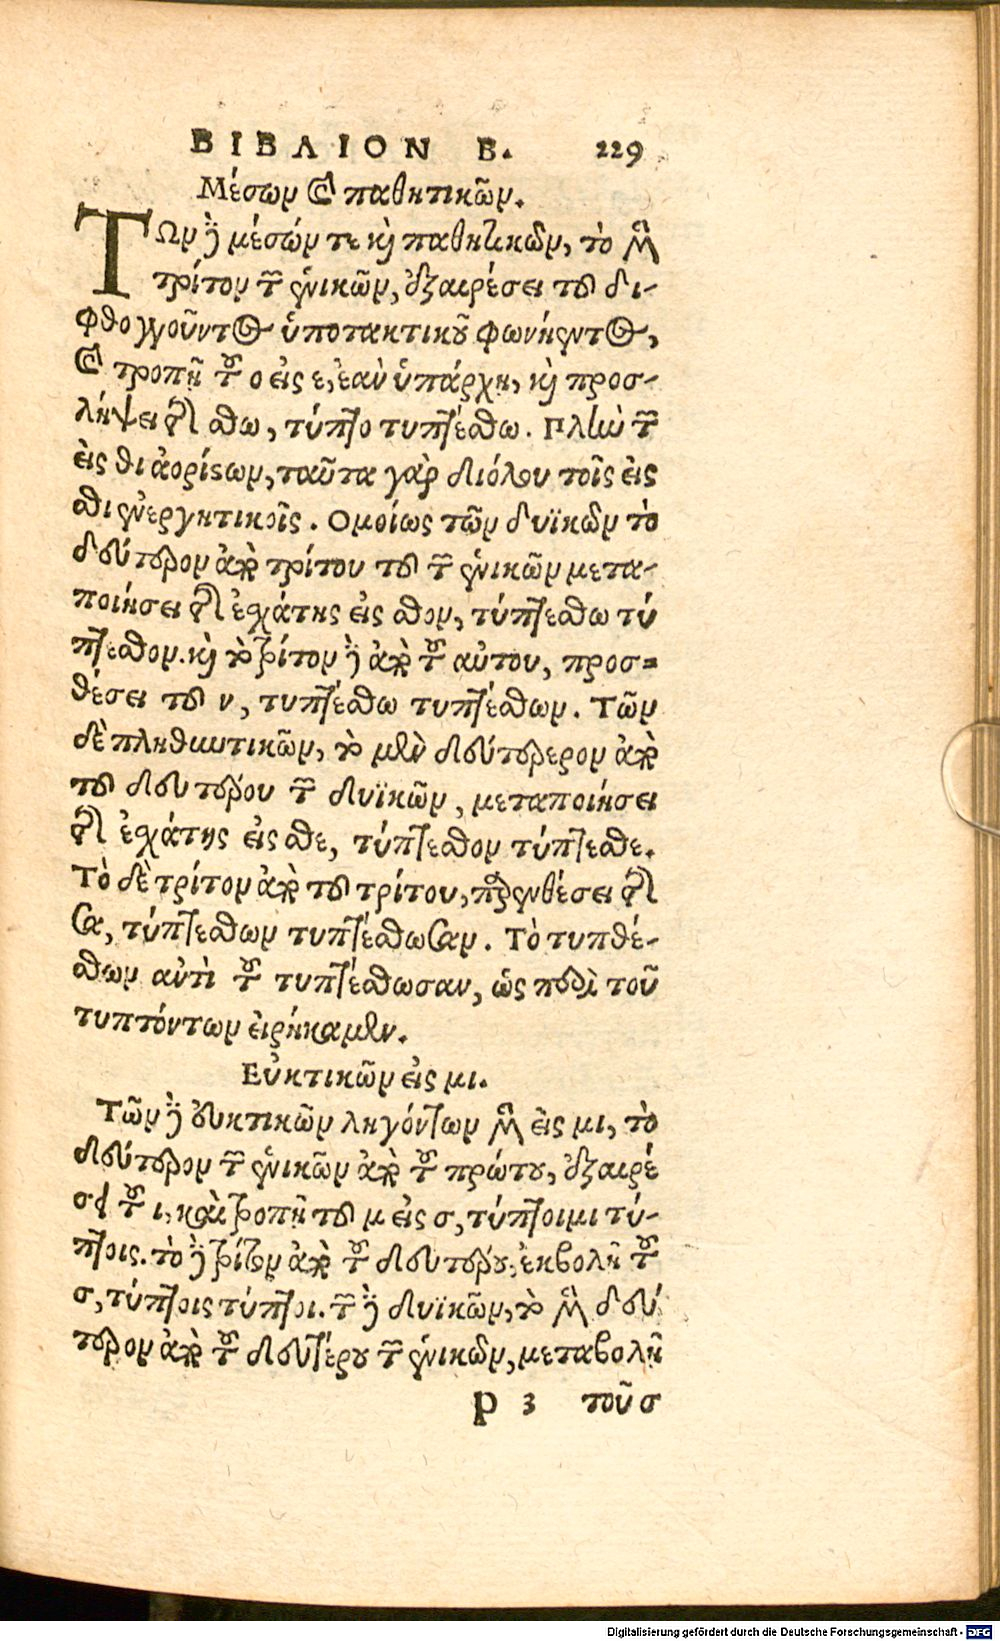 ΒΙΒΛΙΟΝ Β. 229
Μέσων καὶ παθητικῶν.
ΤΩν δὲ μέσων τε καὶ παθητικῶν, τὸ μὲν
τρίτον τῶν ἑνικῶν, ἐξαιρέσει τοῦ δι-
φθογγοῦντος ὑποτακτικοῦ φωνήεντος,
καὶ τροπῇ τοῦ ο εἰς ε, ἐὰν ὑπάρχῃ, καὶ προσ-
λήψει τῆς σθω, τύπτεο τυπτέσθω. Πλὴν τῶν
εἰς θι ἀορίστων, ταῦτα γὰρ διόλου τοῖς εἰς
θι ἐνεργητικοῖς. Ομοίως τῶν δυϊκῶν τὸ
δεύτερον ἀπὸ τρίτου τοῦ τῶν ἑνικῶν μετα-
ποιήσει τῆς ἐσχάτης εἰς σθον, τύπτεσθω τύ
πτεσθον. καὶ τὸ τρίτον δὲ ἀπὸ τοῦ αὐτου, προσ-
θέσει τοῦ ν, τυπτέσθω τυπτέσθων. Τῶν
δὲ πληθυντικῶν, τὸ μὲν δεύτερερον ἀπὸ
τοῦ δευτέρου τῶν δυϊκῶν, μεταποιήσει
τῆς ἐσχάτης εἰς σθε, τύπτεσθον τύπτεσθε.
Τὸ δὲ τρίτον ἀπὸ τοῦ τρίτου, παρενθέσει τῆς
σα, τύπτεσθων τυπτέσθωσαν. Τὸ τυπθέ-
σθων αὐτὶ τοῦ τυπτέσθωσαν, ὡς περὶ τοῦ
τυπτόντων εἰρήκαμεν.
Εὐκτικῶν εἰς μι.
Τῶν δὲ εὐκτικῶν ληγόντων μὲν εἰς μι, τὸ
δεύτερον τῶν ἑνικῶν ἀπὸ τοῦ πρώτου, ἐξαιρέ
σει τοῦ ι, καὶ τροπῇ τοῦ μ εἰς σ, τύπτοιμι τύ-
πτοις. τὸ δὲ τρίτον ἀπὸ τοῦ δευτέρου, ἐκβολῇ τοῦ
σ, τύπτοις τύπτοι. τῶν δὲ δυϊκῶν, τὸ μὲν δεύ
τερον ἀπὸ τοῦ δευτέρου τῶν ἑνικῶν, μεταβολῇ
p 3 τοῦ σ
Digitalisierung gefördert durch die Deutsche Forschungsgemeinschaft - DFG